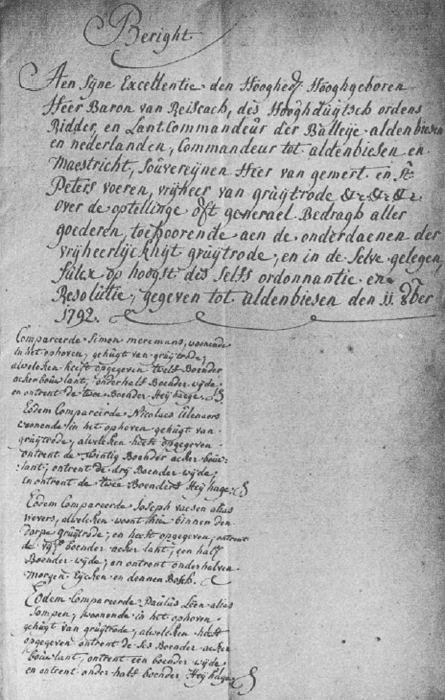 Beright
Aen Sijne Excellentie den Hooghed: Hooghgeboren
Heer Baron van Reiscach, des Hooghduijtsch ordens
Ridder, en Lant Commandeur der Balleije aldenbiesen
en nederlanden, Commandeur tot aldenbiesen en
Maestricht, Souvereijnen Heer van gemert en St
Peters voeren, vrijheer van gruijtrode &c &c &c
over de optellinge oft generael Bedragh aller
goederen, toehoorende aen de onderdaenen der
vrijheerlijckhijt gruijtrode, en in de selve gelegen,
sulcx op hooghst des selfs ordonnantie en
Resolutie, gegeven tot aldenbiesen den 11 8ber
1792.
Compareerde Simon meremans, woonende
in het ophoven, gehught van gruijtrode,
alwelcken heeft opgegeven twelf Boender
acker bouw lant, onderhalf Boender wijde,
en ontrent de twee Boender Heijhaege
Eodem Compareerde Nicolaus
woonende in het ophoven gehught van
gruijtrode, alwelcken heeft opgegeven
ontrent de twintig Boender acker bouw
lant, ontrent de drij Boender wijde,
en ontrent de twee Boenders Heijhage
Eodem Compareerde Joseph vaesen alias
wevers, alwelcken woont hier binnen den
dorpe gruijtrode, en heeft opgegeven, ontrent
de boender acker lant, een half
Boender wijde, en ontrent onderhalven
morgen Eijcken en dennen Bosch.
Eodem Compareerde Paulus Leen alias
Sompen, woonende in het ophoven
gehught van gruijtrode, alwelcken heeft
opgegeven ontrent de ses Boender acker
bouw lant, ontrent een boender wijde
en ontrent onder half boender Heijhage